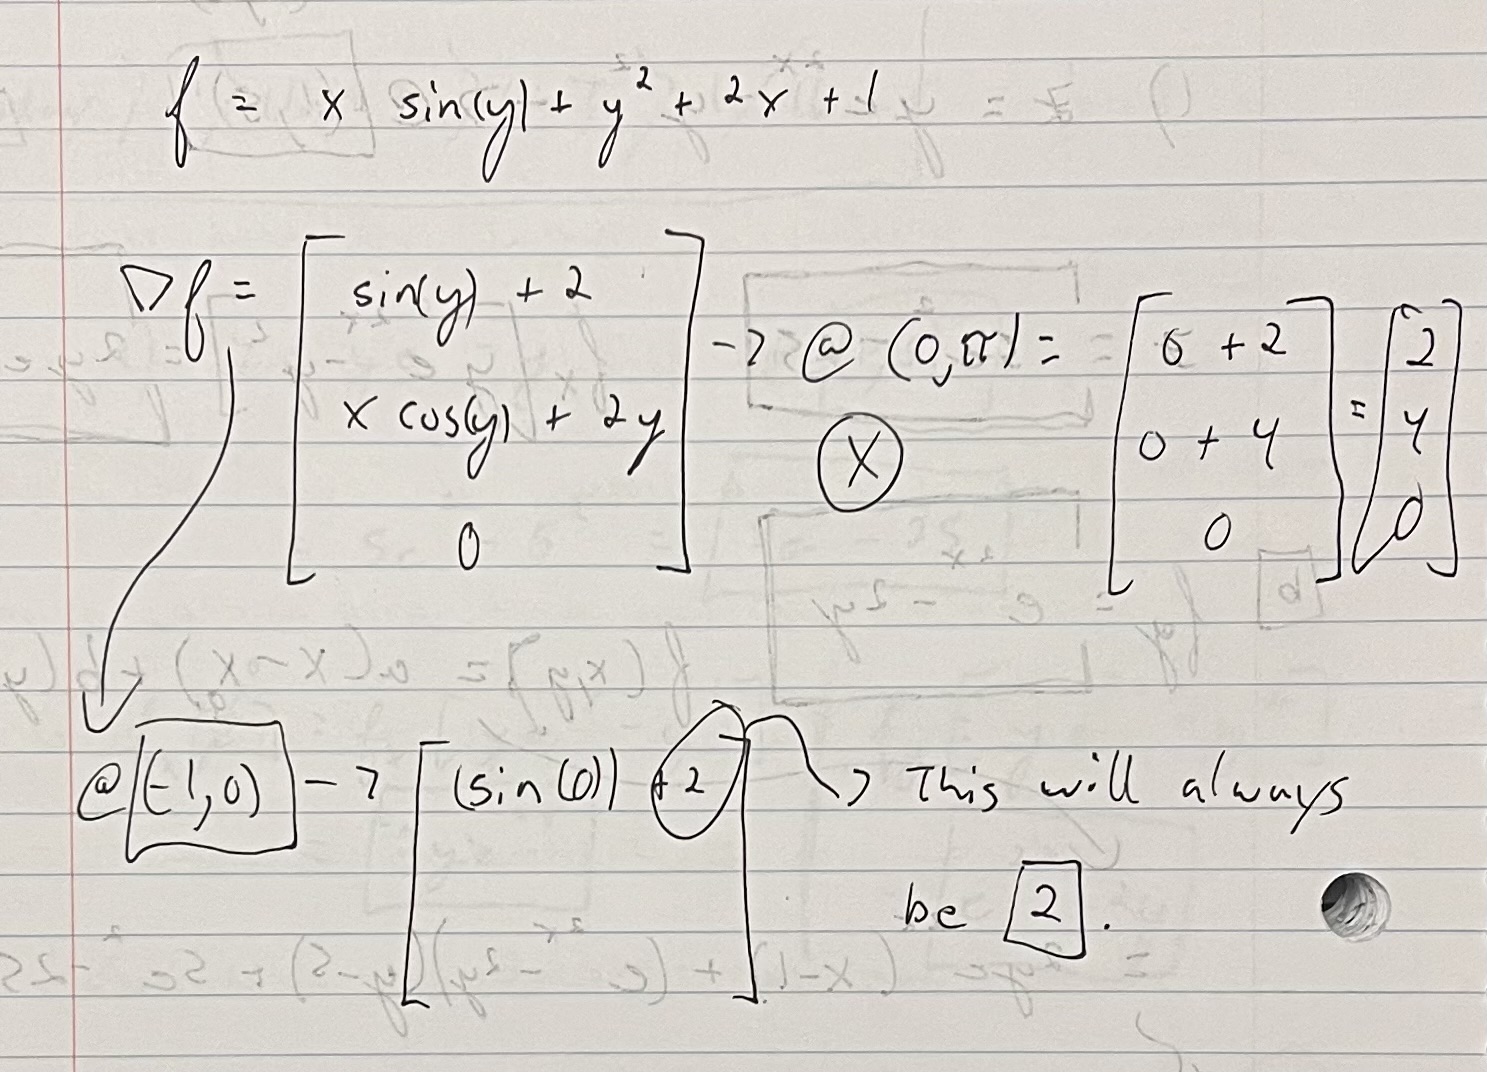 f = x sin(y) + y² + 2x + 1
∇f = [ sin(y) + 2 ; x cos(y) + 2y ; 0 ] -> @ (0,π) = [ 0 + 2 ; 0 + 4 ; 0 ] = [ 2 ; 4 ; 0 ]
X
@ (-1,0) -> [ (sin(0)) + 2 ] -> This will always
be 2.